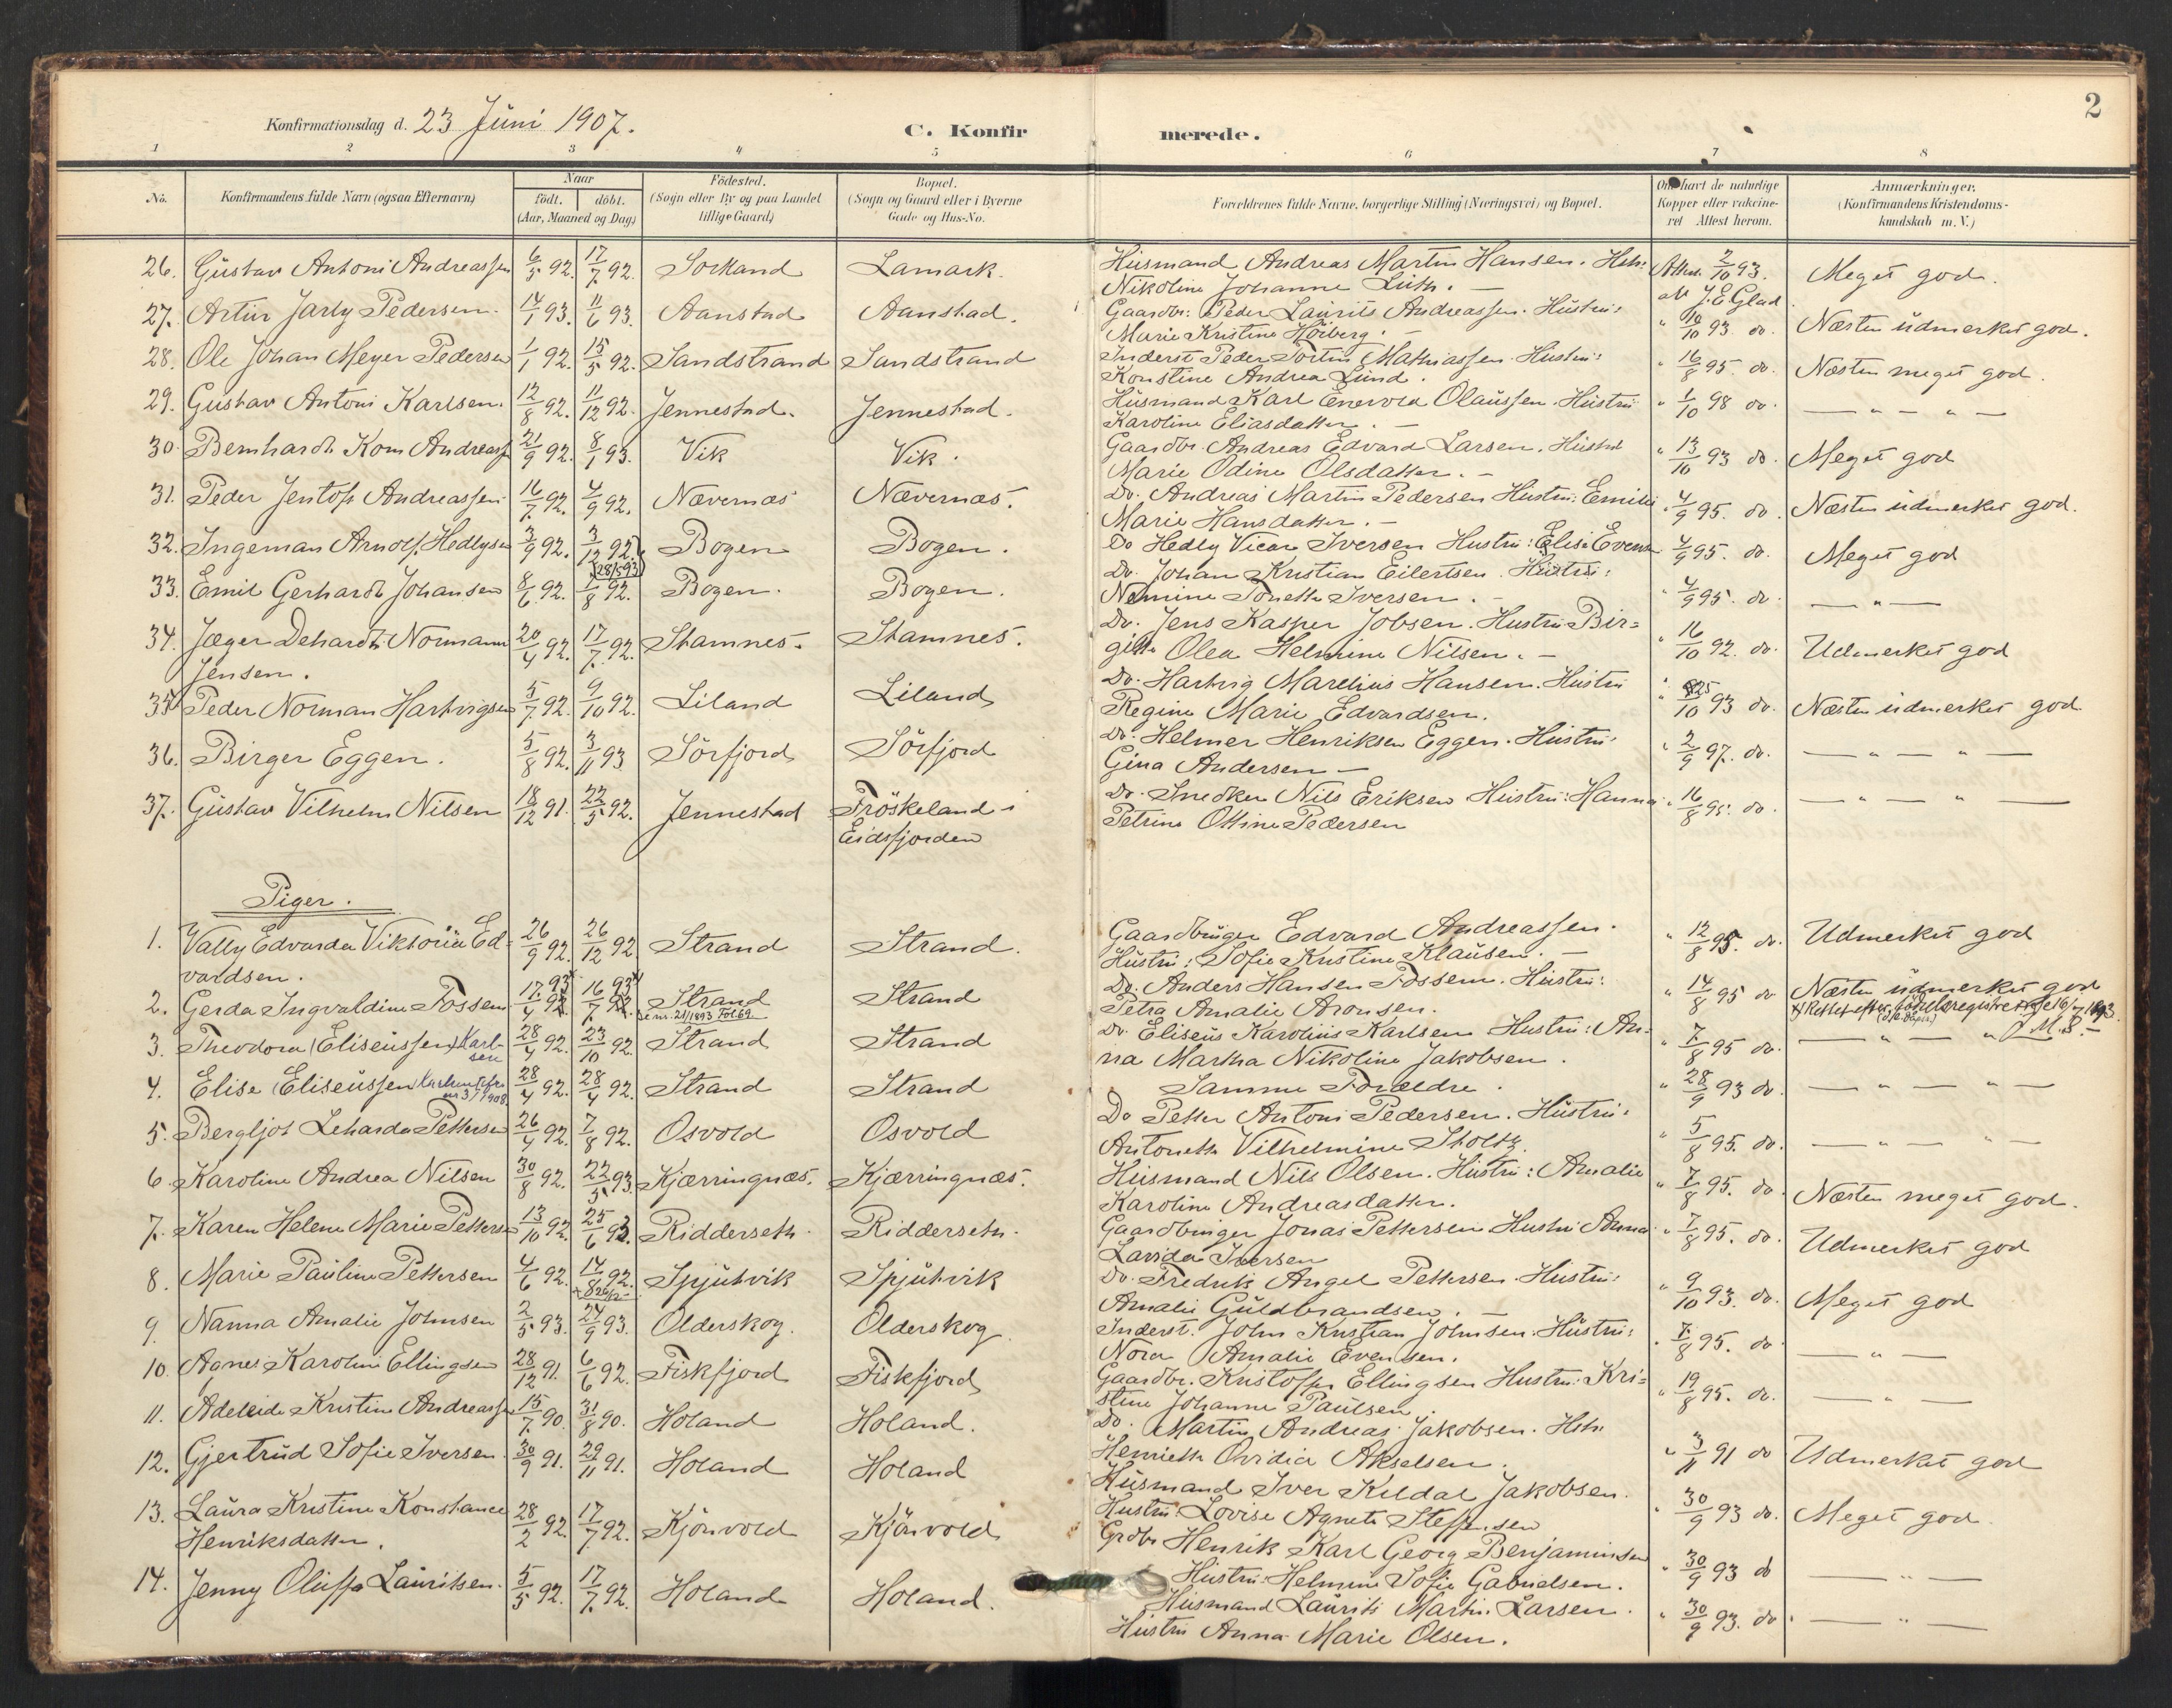 2
Konfirmationsdag d. 23 Juni 1907.
C. Konfirmerede.
1 2 3 4 5 6 7 8
No. Konfirmandens fulde Navn (ogsaa Efternavn) Naar födt. döbt. (Aar, Maaned og Dag) Födested. (Sogn eller By og paa Landet tillige Gaard) Bopæl. (Sogn og Gaard eller i Byerne Gade og Hus-No. Forældrenes fulde Navne, borgerlige Stilling (Næringsvei) og Bopæl. Om havt de naturlige Kopper eller vakcineret Attest herom. Anmærkninger. (Konfirmandens Kristendomskundskab m.V.)
26. Gustav Antoni Andreassen 6/5 92. 17/7 92. Sortland Lamark. Husmand Andreas Martin Hansen. Hstr: Nikoline Johanne Luth. – Attest. 2/10 93. af J. E. Glad. Meget god.
27. Artur Jarly Pedersen. 14/1 93. 11/6 93. Aanstad Aanstad. Gaardbr: Peder Laurits Andreassen. Hustru: Marie Kristine Höiberg. – " 10/10 93. do. Næsten udmerket god.
28. Ole Johan Meyer Pedersen 1/1 92. 15/5 92. Sandstrand Sandstrand Inderst Peder Tortin Mathiassen. Hustru: Konstine Andrea Lund. " 16/8 95. do. Næsten meget god.
29. Gustav Antoni Karlsen. 12/8 92. 11/12 92. Jennestad. Jennestad. Husmand Karl Enevold Olaussen. Hustru Karoline Eliasdatter. – " 1/10 98 do. — " — " —
30. Bernhardt Korn Andreass. 21/9 92. 8/1 93. Vik Vik. Gaardbr. Andreas Edvard Larsen. Hustru Marie Odine Olsdatter. – " 13/10 93 do. Meget god
31. Peder Jentoft Andreassen 16/7 92. 4/9 92. Nævernæs Nævernæs. Do. Andreas Martin Pedersen Hustru: Emilie Marie Hansdatter. – " 4/9 95. do. Næsten udmerket god.
32. Ingeman Arnolf Hedlysen 3/9 92. 3/12 92. (28/5 93) Bogen Bogen. Do Hedly Vicar Iversen Hustru: Elise Evens " 4/9 95. do. Meget god
33. Emil Gerhardt Johansen 8/6 92. 1/8 92. Bogen. Bogen. Do. Johan Kristian Eilertsen. Hustru: Nemine Tonette Iversen. – " 4/9 95. do. — " —
34. Jæger Dehardt Normann Jensen. 20/4 92. 17/7 92. Stamnes. Stamnes. Do. Jens Kasper Jobsen. Hustru Birgitte Olea Helmine Nilsen. – " 16/10 92. do. Udmerket god
35. Peder Norman Hartvigsen 5/7 92. 9/10 92. Liland Liland Do. Hartvig Marelius Hansen. Hustru Regine Marie Edvardsen. " 25/10 93 do. Næsten udmerket god
36. Birger Eggen. 5/8 92. 3/11 93 Sörfjord Sörfjord Do. Helmer Henriksen Eggen. Hustru Gina Andersen – " 2/9 97. do. — " — " —
37. Gustav Vilhelm Nilsen 18/12 91. 22/5 92. Jennestad Fröskeland i Eidsfjorden Do. Snedker Nils Eriksen Hustru: Hanna Petrine Ottine Pedersen " 16/8 95. do. — " — " —
Piger.
1. Vally Edvarda Viktoria Edvardsen. 26/9 92. 26/12 92 Strand Strand. Gaardbruger Edvard Andreassen. Hustru: Sofie Kristine Klausen. – " 12/8 95. do. Udmerket god
2. Gerda Ingvaldine Fossem 17/4 93 16/7 93 Strand Se nr. 21/1893 Fol 69 Strand Do. Anders Hansen Fossem. Hustru: Petra Amalie Aronsen. " 14/8 95 do Næsten udmerket god
3. Theodora (Eliseussen) Karlsen 28/4 92. 23/10 92. Strand Strand Do. Eliseus Karolius Karlsen Hustru: Anna Martha Nikoline Jakobsen. " 7/8 95 do. — " — "
4. Elise (Eliseussen) 28/4 92. 28/4 92. Strand Strand Samme Forældre. " 28/9 93 do. — " — " —
5. Bergljot Leharda Pettersen 26/4 92. 7/8 92. Osvold Osvold Do Petter Antoni Pedersen. Hustru: Antonette Vilhelmine Stoltz. " 5/8 95. do. — " — " —
6. Karoline Andrea Nilsen 30/8 92. 22/5 93. Kjærringnæs. Kjærringnæs. Husmand Nils Olsen. Hustru: Amalie Karoline Andreasdatter. " 7/8 95. do. Næsten meget god.
7. Karen Helene Marie Pettersen 13/10 92. 25/6 93. Ridderseth. Ridderseth. Gaardbruger Jonas Pettersen Hustru Anna Lavida Iversen " 7/8 95. do. Udmerket god
8. Marie Pauline Pettersen 4/6 92. 14/8 92. Spjutvik Spjutvik Do. Fredrik Angel Pettersen. Hustru: Amalie Guldbrandsen. – " 9/10 93. do. Meget god
9. Nanna Amalie Johnsen 2/5 93. 24/9 93. Olderskog. Olderskog. Inderst. John Kristian Johnsen. Hustru: Nora Amalie Evensen. " 7/8 95. do. — " —
10. Agnes Karoline Ellingsen 28/12 91. 6/6 92. Fiskfjord Fiskfjord Gaardbr. Kristoffer Ellingsen Hustru: Kristine Johanne Paulsen. " 19/8 95. do. — " —
11. Adeleide Kristine Andreassen 15/7 90. 31/8 90. Holand Holand. Do. Martin Andreas Jakobsen. Hstr. Henriette Ovidia Akselsen. " 3/11 91 do Udmerket god
12. Gjertrud Sofie Iversen. 30/9 91. 29/11 91. Holand Holand Husmand Iver Kildal Jakobsen. Hustru Lovise Agnete Steffensen " 30/9 93 do. Meget god.
13. Laura Kristine Konstance Henriksdatter. 28/2 92. 17/7 92. Kjönvold Kjönvold Grdbr Henrik Karl Georg Benjaminsen Hustru: Helmine Sofie Gabrielsen. " 30/9 93 do — " —
14. Jenny Oluffa Lauritsen. 5/5 92. 17/7 92. Holand Holand. Husmand Laurits Martin Larsen. Hustru Anna Marie Olsen. " 30/9 93. do — " —